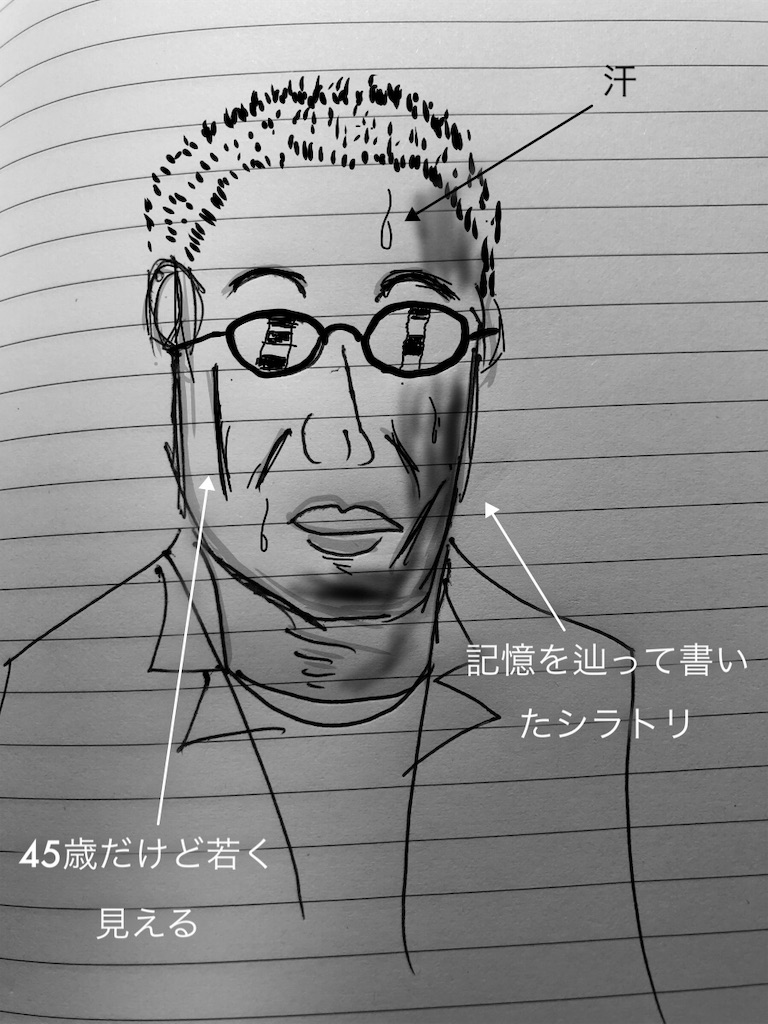 汗
記憶を辿って書い
たシラトリ
45歳だけど若く
見える